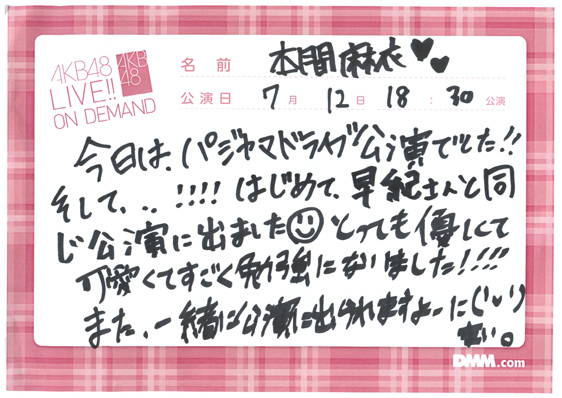 AKB48
LIVE!!
ON DEMAND
AKB
48
名前 本間麻衣
公演日 7月 12日 18:30 公演
今日は、パジャマドライブ公演でした!!
そして、、、!!!! はじめて、早紀さんと同
じ公演に出ました とっても優しくて
可愛くてすごく勉強になりました!!!!
また、一緒に公演に出られますよーに(しい)
まい。
DMM.com